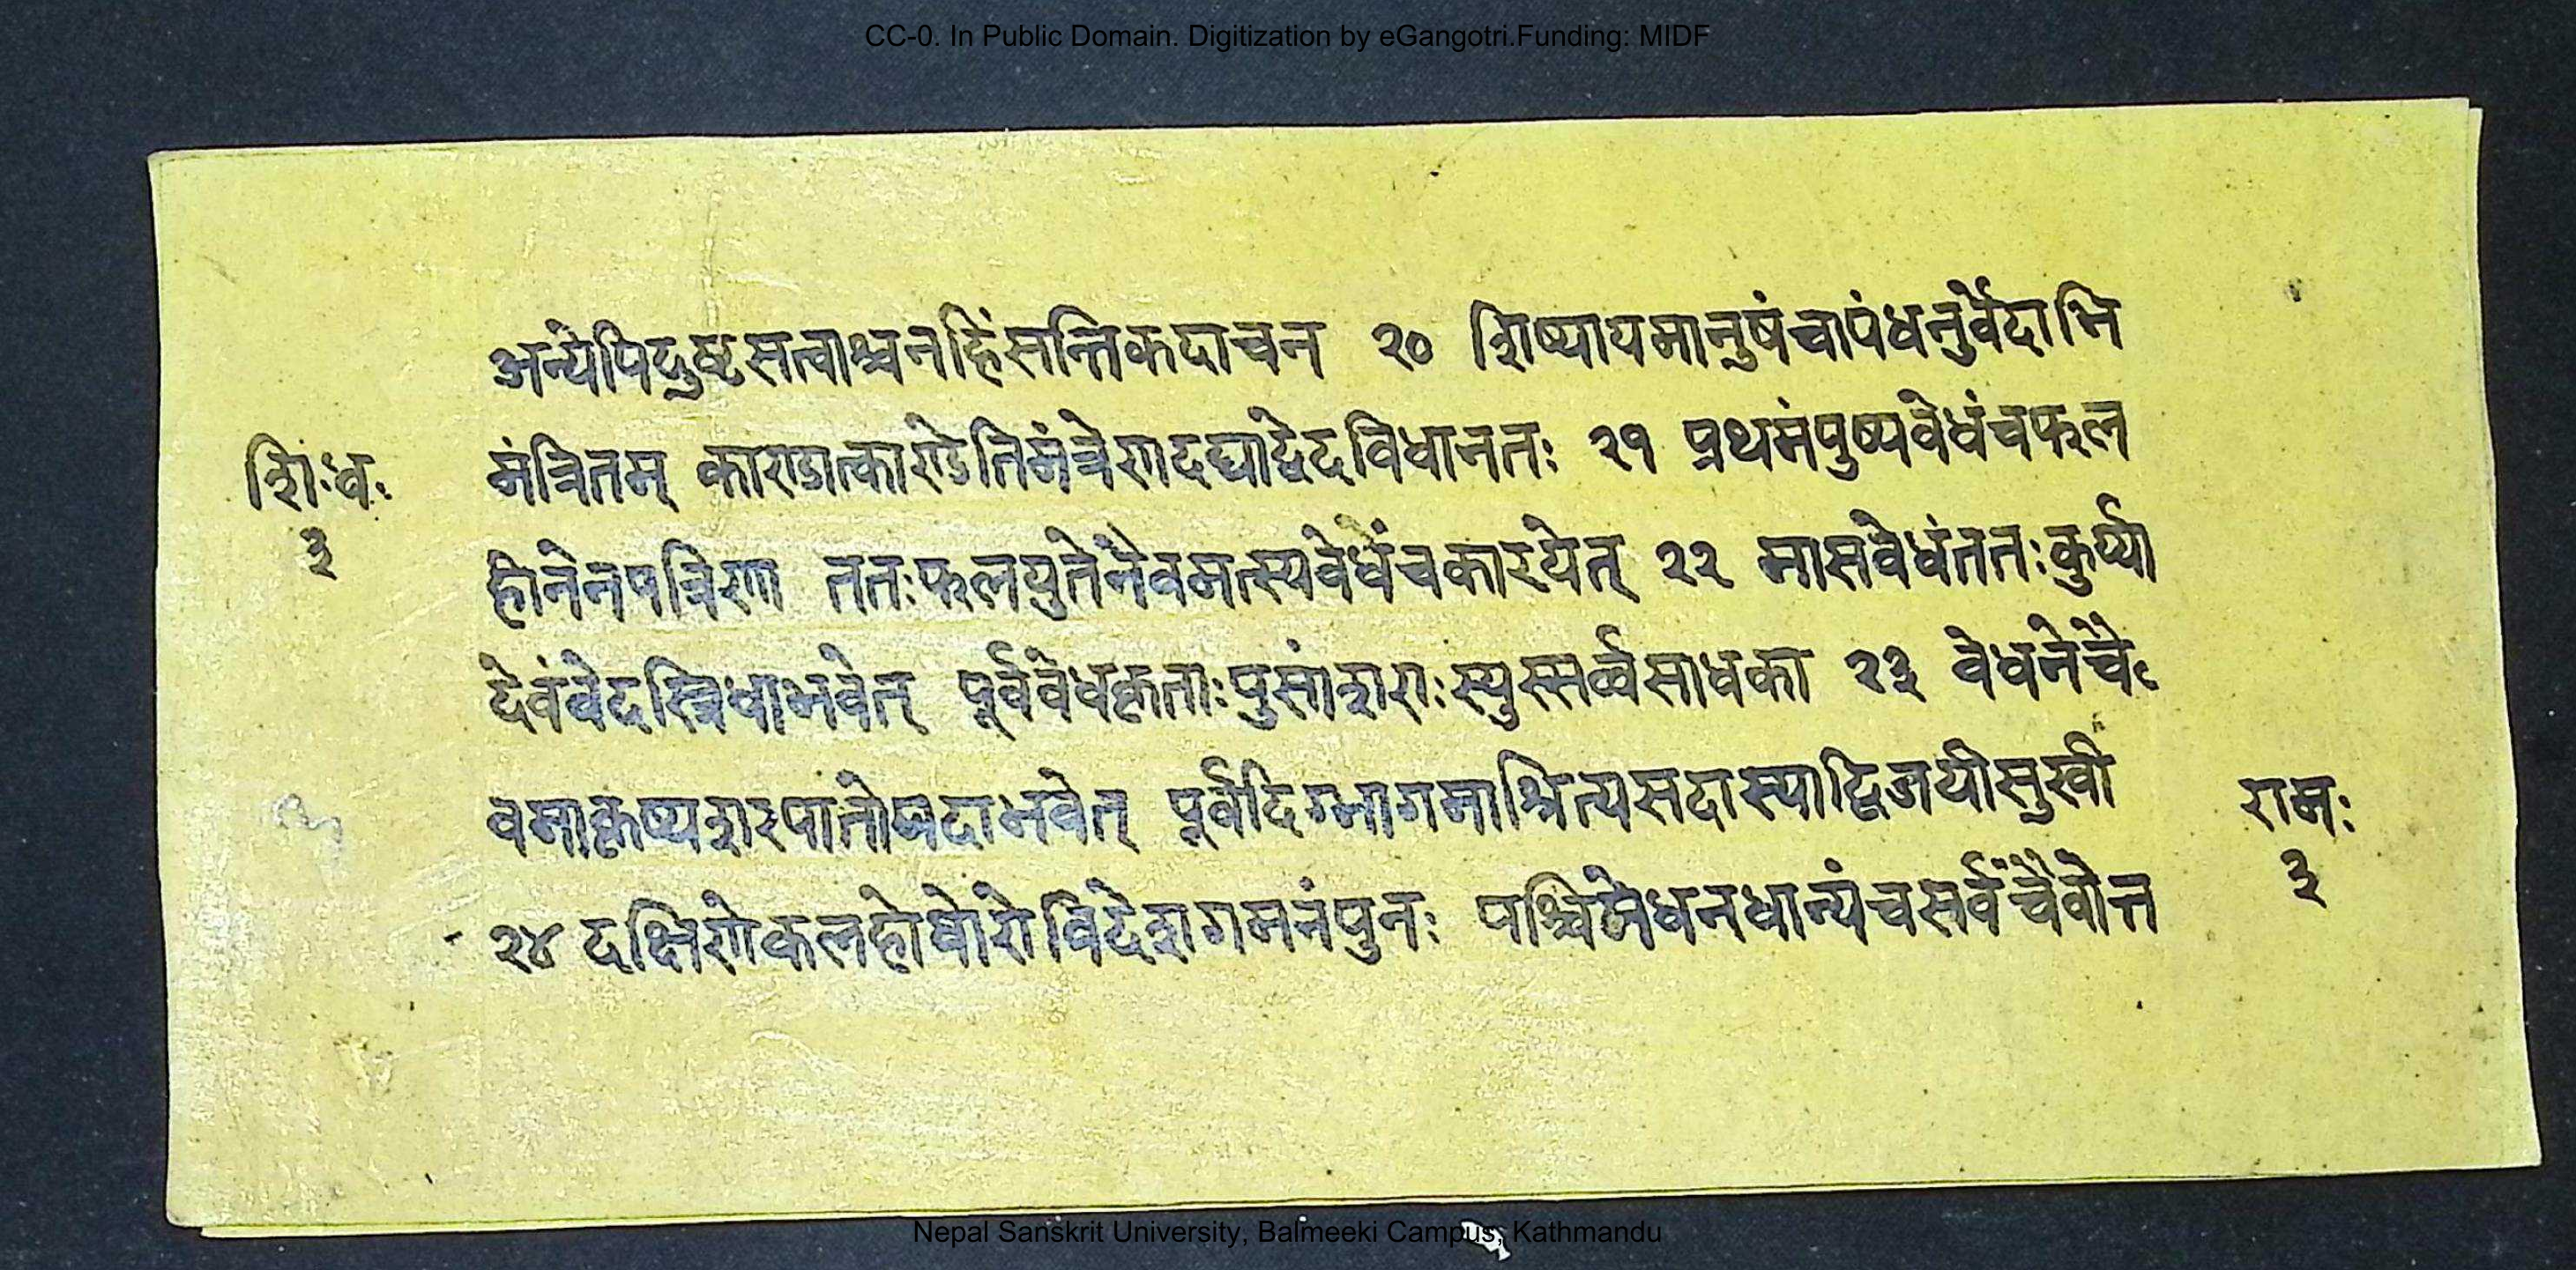 CC-0. In Public Domain. Digitization by eGangotri.Funding: MIDF
अन्येपिदुष्टसत्वाश्चनहिंसन्तिकदाचन २० शिष्यायमानुषंचापंधनुर्वेदाभि
शिःधः मंत्रितम् काण्डात्काण्डेतिमंत्रेणदद्याद्वेदविधानतः २१ प्रथमंपुष्पवेधंचफल
३ हीनेनपत्रिणा ततःफलयुतेनैवमत्स्यवेधंचकारयेत् २२ मासवेधंततःकुर्य्या
देवंवेदस्त्रिधाभवेत् पूर्ववेधकृताःपुसांशराःस्युस्सर्व्वसाधका २३ वेधनेचै
वमाकृष्यशरपातोयदाभवेत् पूर्वदिग्भागमाश्रित्यसदास्याद्विजयीसुखी रामः
२४ दक्षिणेकलहोघोरोविदेशगमनंपुनः पश्चिमेधनधान्यंचसर्वंचैवोत्त ३
Nepal Sanskrit University, Balmeeki Campus, Kathmandu